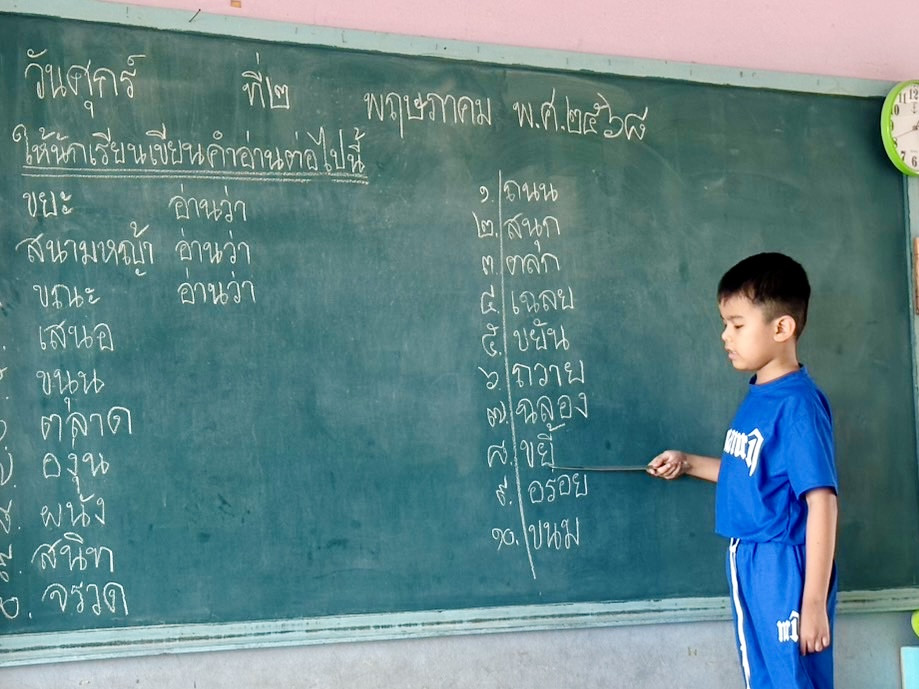 วันศุกร์ ที่๒ พฤษภาคม พ.ศ.๒๕๖๘
ให้นักเรียนเขียนคำอ่านต่อไปนี้
ขยะ อ่านว่า
สนามหญ้า อ่านว่า
ขณะ อ่านว่า
เสนอ
ขนุน
ตลาด
องุ่น
ผนัง
สนิท
จรวด
๑. ถนน
๒. สนุก
๓. ตลก
๔. เฉลย
๕. ขยัน
๖. ถวาย
๗. ฉลอง
๘. ขยี้
๙. อร่อย
๑๐. ขนม
11 12